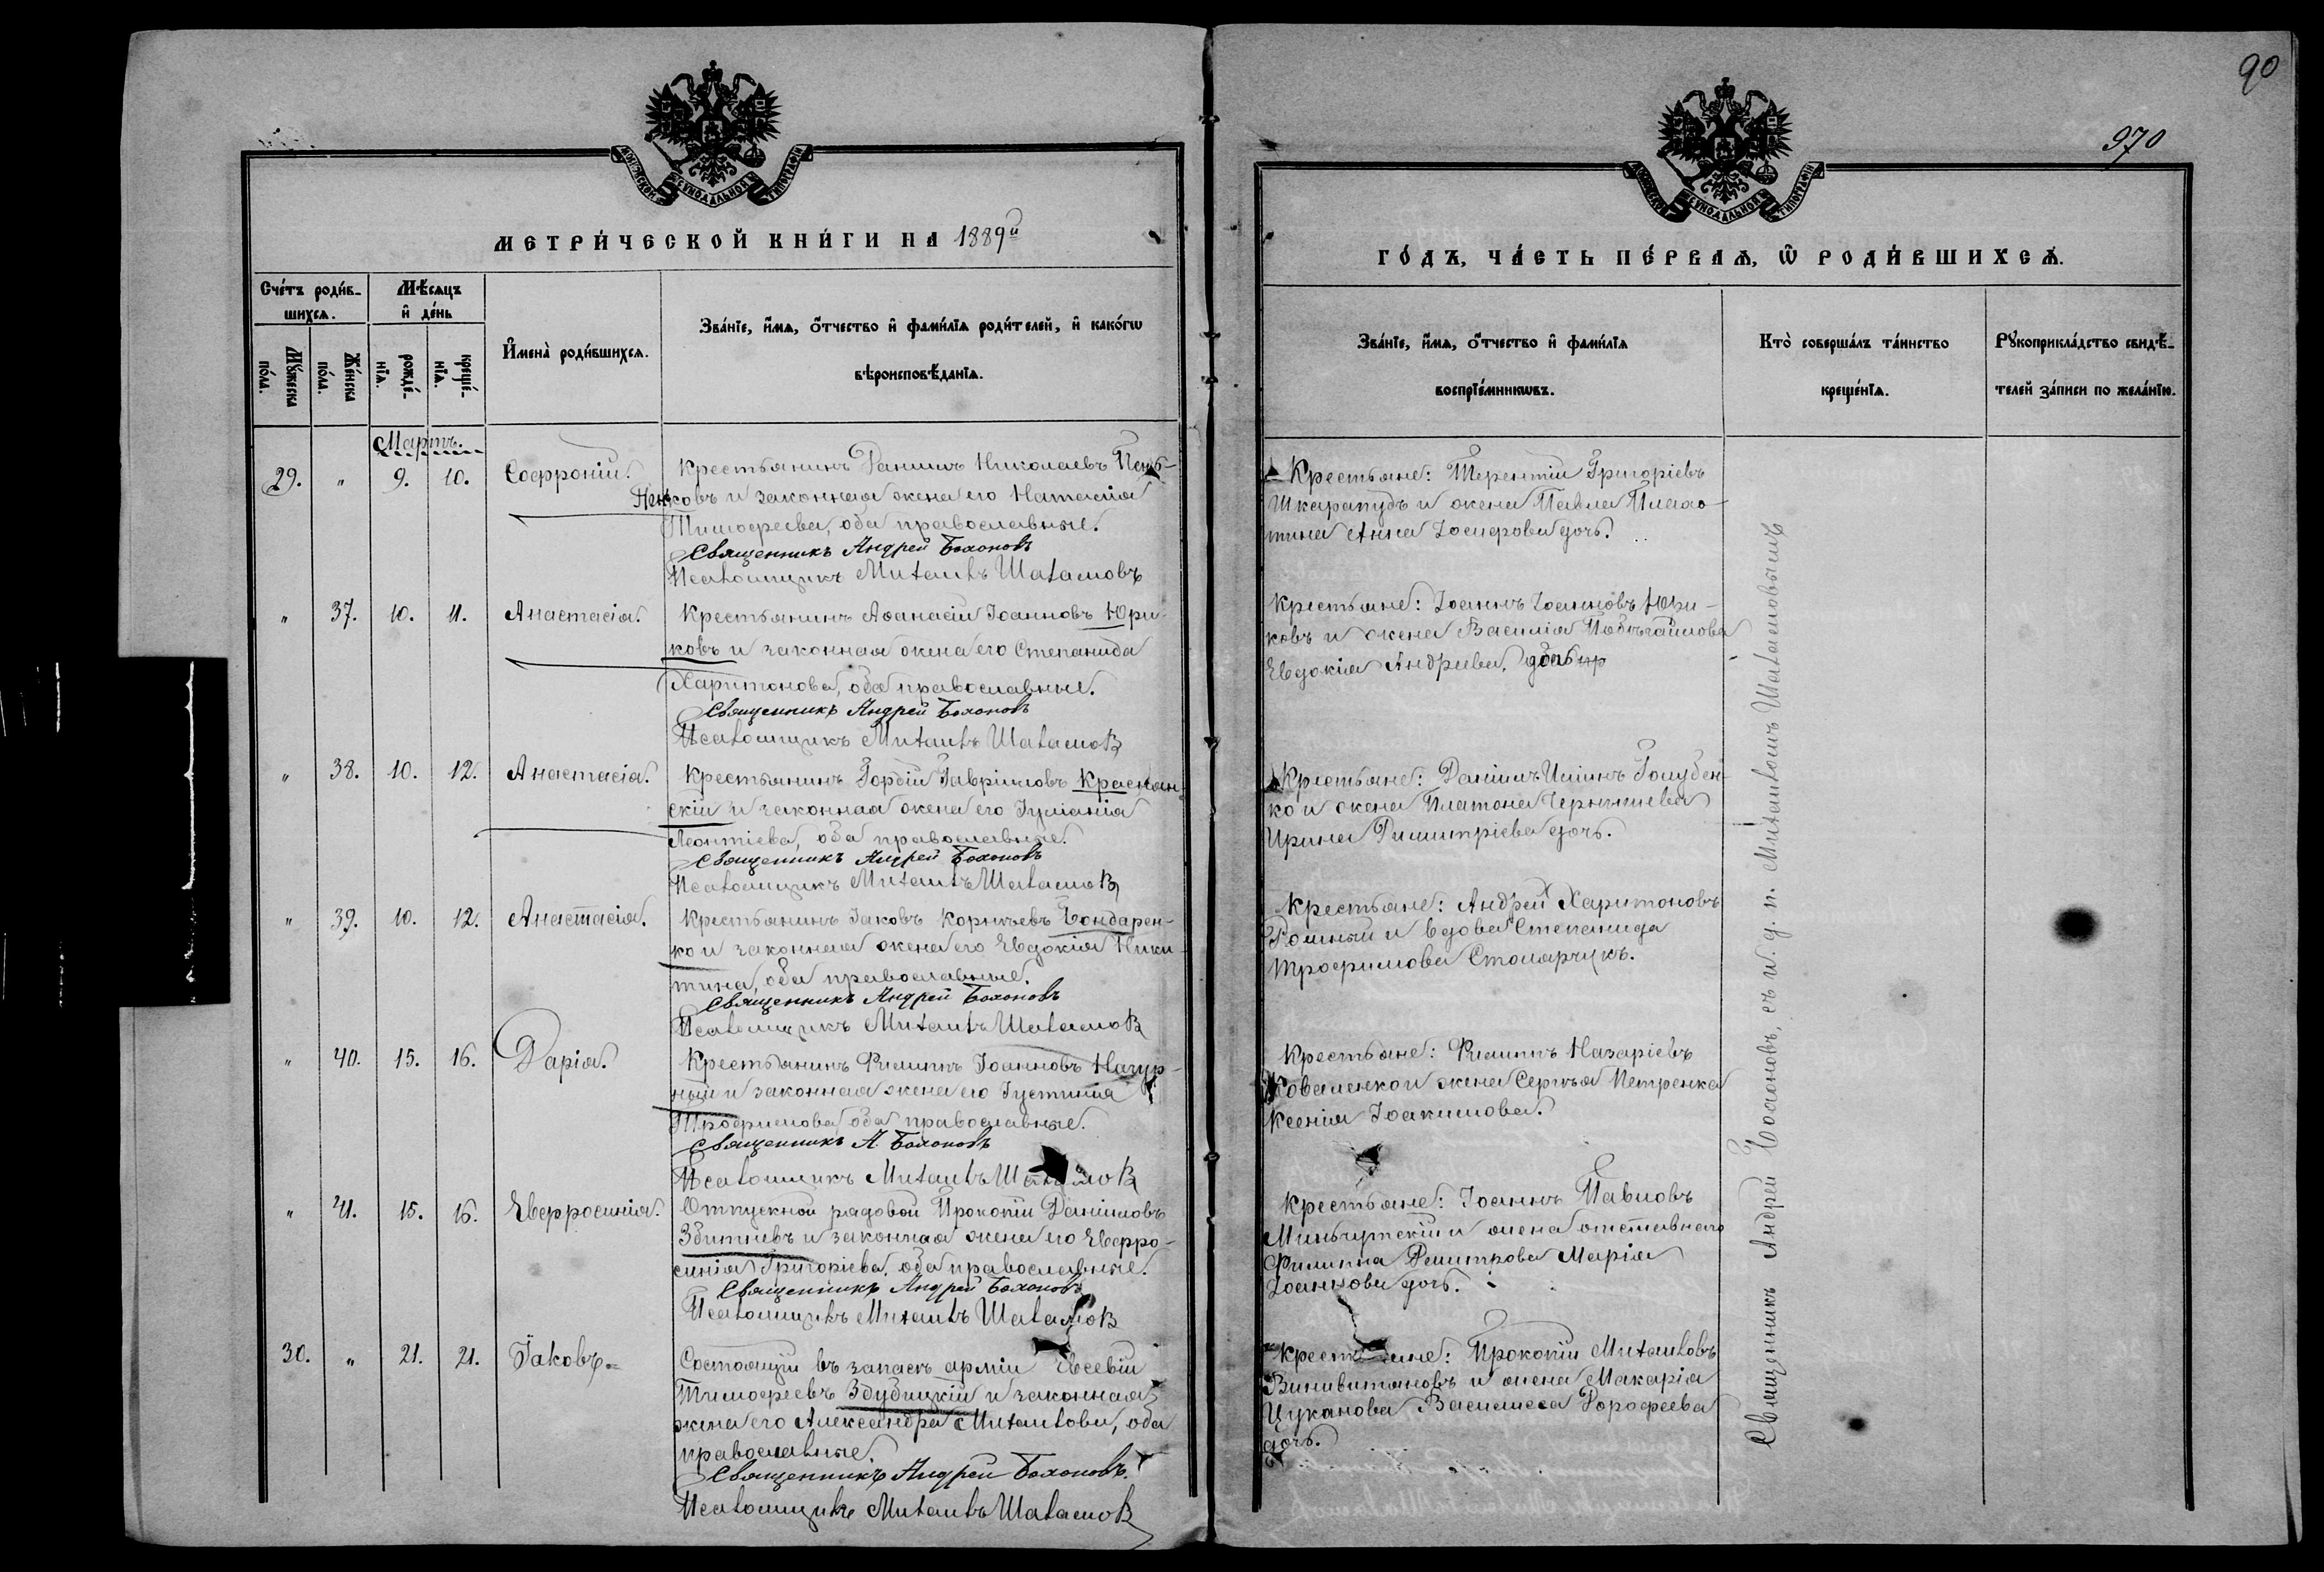 90
970
МОСКОВСКОЙ СѴНОДАЛЬНОЙ ТИПОГРАФІИ
МОСКОВСКОЙ СѴНОДАЛЬНОЙ ТИПОГРАФІИ
МЕТРИ́ЧЕСКОЙ КНИ́ГИ НА 1889й
ГО́ДЪ, ЧА́СТЬ ПЕ́РВАѦ, Ѡ РОДИ́ВШИХСѦ.
Сче́тъ роди́в-
шихсѧ.
Мѣ́сѧцъ
и де́нь
Мꙋ́жеска
по́ла.
Же́нска
по́ла.
рожде́-
нїѧ.
креще́-
нїѧ.
И҆мена̀ роди́вшихсѧ.
Зва́нїе, и҆́мѧ, о҆́тчество и҆ фами́лїѧ роди́телей, и҆ како́гѡ
вѣроисповѣ́данїѧ.
Зва́нїе, и҆́мѧ, о҆́тчество и҆ фами́лїѧ
воспрїе́мникѡвъ.
Кто̀ соверша́лъ та́инство
креще́нїѧ.
Рꙋкоприкла́дство свидѣ́-
телей за́писи по жела́нїю.
Мартъ.
29. " 9. 10. Софроній.
Крестьянинъ Даніилъ Николаевъ
и законная жена его Наталія
Тимофеева, оба православные.
Священникъ Андрей Бохоновъ
Псаломщикъ Михаилъ Шаталовъ
Крестьяне: Терентій Григоріевъ
Шкарапудъ и жена Павла
Анна Іосифова дочь.
" 37. 10. 11. Анастасія.
Крестьянинъ Аѳанасій Іоанновъ Юри-
ковъ и законная жена его Степанида
Харитонова, оба православные.
Священникъ Андрей Бохоновъ
Псаломщикъ Михаилъ Шаталовъ
Крестьяне: Іоаннъ Іоанновъ Юри-
ковъ и жена Василія
Евдокія Андреева,
" 38. 10. 12. Анастасія.
Крестьянинъ Гордій Гавріиловъ Краснян-
скій и законная жена его Іуліанія
Леонтіева, оба православные.
Священникъ Андрей Бохоновъ
Псаломщикъ Михаилъ Шаталовъ
Крестьяне: Даніилъ Иліинъ Голубен-
ко и жена Платона Чернышева
Ирина Димитріева дочь.
" 39. 10. 12. Анастасія.
Крестьянинъ Іаковъ Корнѣевъ Бондарен-
ко и законная жена его Евдокія Ники-
тина, оба православные.
Священникъ Андрей Бохоновъ
Псаломщикъ Михаилъ Шаталовъ
Крестьяне: Андрей Харитоновъ
и вдова Степанида
Трофимова Столярчукъ.
" 40. 15. 16. Дарія.
Крестьянинъ Филиппъ Іоанновъ Нагур-
ный и законная жена его Іустинія
Трофимова, оба православные.
Священникъ А. Бохоновъ
Псаломщикъ Михаилъ Шаталовъ
Крестьяне: Филиппъ Назаріевъ
Коваленко и жена Сергѣя Петренка
Ксенія Іоакимова.
" 41. 15. 16. Евфросинія.
Отпускной рядовой Прокопій Даніиловъ
Збитневъ и законная жена его Евфро-
синія Григоріева, оба православные.
Священникъ Андрей Бохоновъ
Псаломщикъ Михаилъ Шаталовъ
Крестьяне: Іоаннъ Павловъ
и жена отставнаго
Филиппа Димитрова Марія
Іоаннова дочь.
30. " 21. 21. Іаковъ.
Состоящій въ запасѣ арміи Евсевій
Тимофеевъ Здубицкій и законная
жена его Александра Михаилова, оба
православные.
Священникъ Андрей Бохоновъ.
Псаломщикъ Михаилъ Шаталовъ
Крестьяне: Прокопій Михаиловъ
и жена Макарія
Цуканова Василисса Дорофеева
дочь.
Священникъ Андрей Бохоновъ, съ и. д. п. Михаиломъ Шаталовымъ